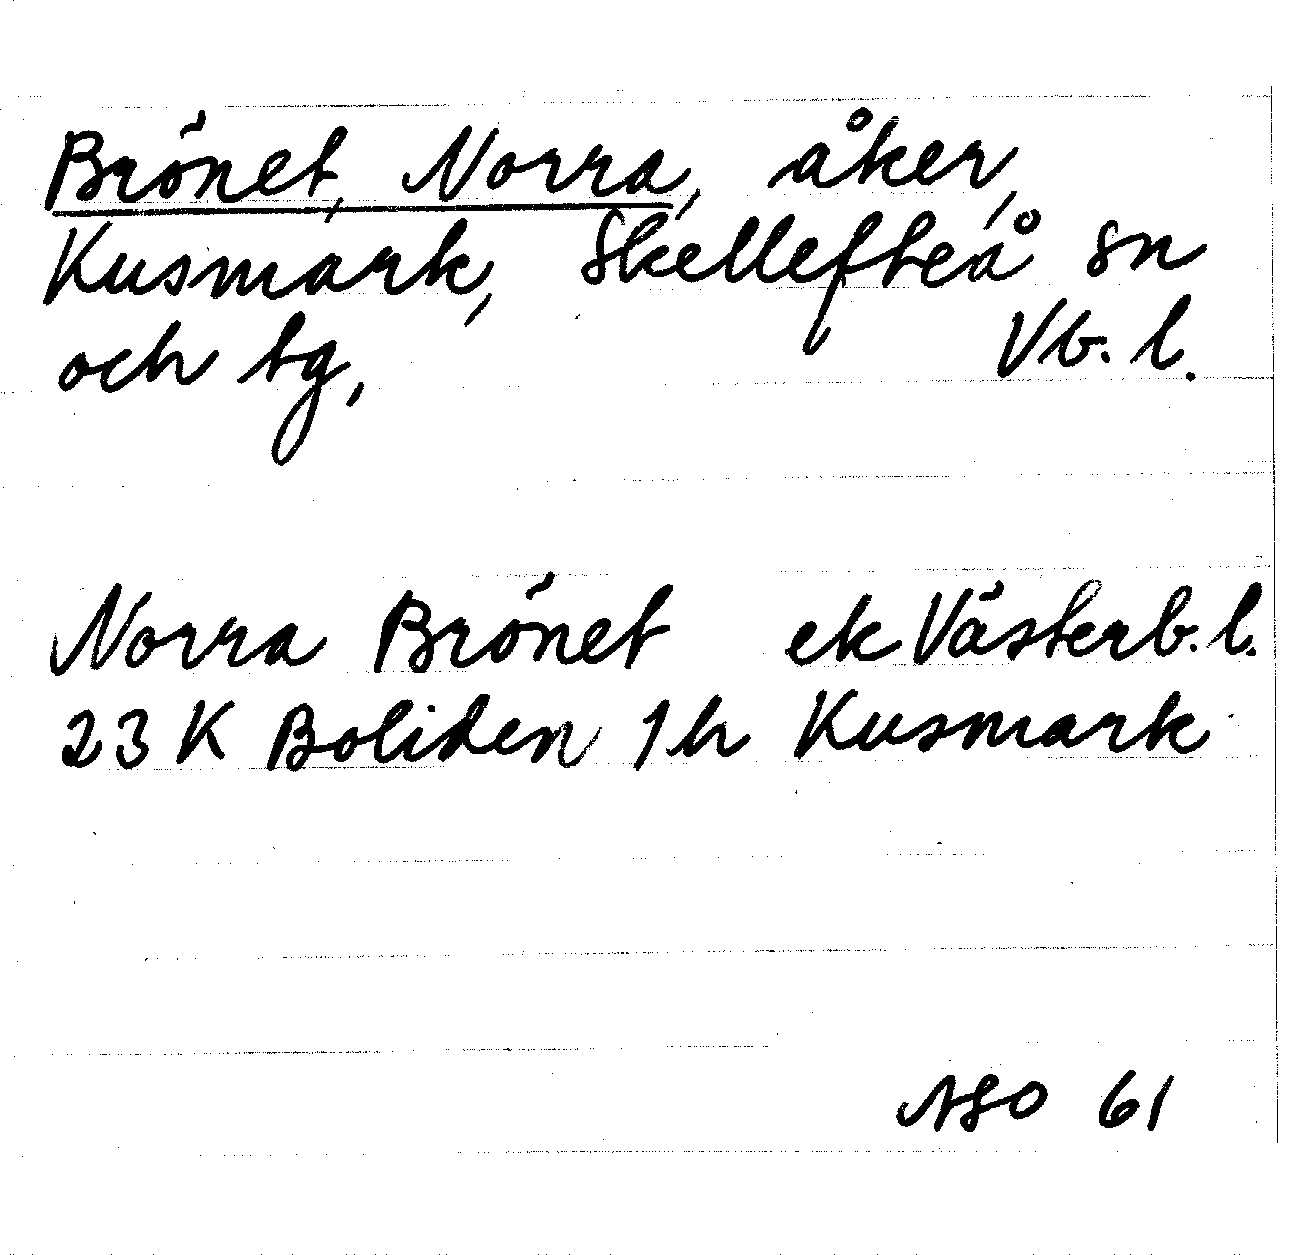 Brönet, Norra, åker,
Kusmark, Skellefteå sn
och tg, Vb. l.
Norra Brönet ek Västerb. l.
23 K Boliden 1 h Kusmark
ASO 61